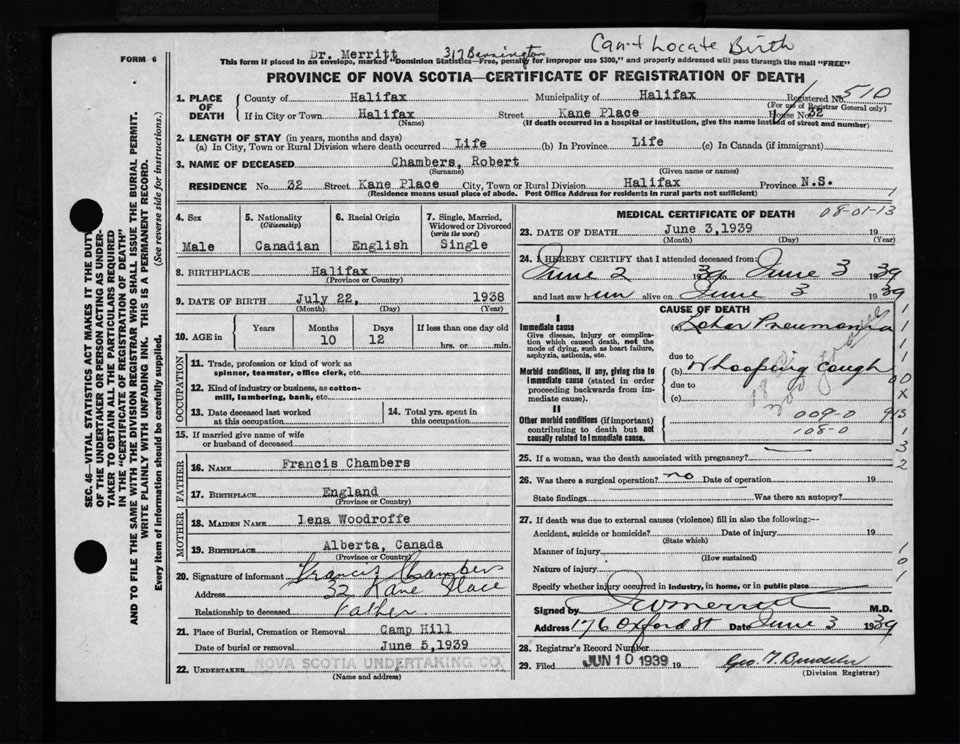 FORM 6
Dr. Merritt 317 Barrington Can't Locate Birth
This form if placed in an envelope, marked "Dominion Statistics—Free, penalty for improper use $300," and properly addressed will pass through the mail "FREE"
PROVINCE OF NOVA SCOTIA—CERTIFICATE OF REGISTRATION OF DEATH
1. PLACE OF DEATH
County of Halifax Municipality of Halifax Registered No. 510
(For use of Registrar General only)
If in City or Town Halifax Street Kane Place House No. 32
(Name) (If death occurred in a hospital or institution, give the name instead of street and number)
2. LENGTH OF STAY (in years, months and days)
(a) In City, Town or Rural Division where death occurred Life (b) In Province Life (c) In Canada (if immigrant)
3. NAME OF DECEASED Chambers, Robert
(Surname) (Given name or names)
RESIDENCE No. 32 Street Kane Place City, Town or Rural Division Halifax Province N.S.
(Residence means usual place of abode. Post Office Address for residents in rural parts not sufficient)
4. Sex
Male
5. Nationality
(Citizenship)
Canadian
6. Racial Origin
English
7. Single, Married, Widowed or Divorced
(write the word)
Single
8. BIRTHPLACE Halifax
(Province or Country)
9. DATE OF BIRTH July 22, 1938
(Month) (Day) (Year)
10. AGE in
Years Months Days If less than one day old
10 12 hrs. or min.
OCCUPATION
11. Trade, profession or kind of work as
spinner, teamster, office clerk, etc.
12. Kind of industry or business, as cotton-
mill, lumbering, bank, etc.
13. Date deceased last worked
at this occupation
14. Total yrs. spent in
this occupation
15. If married give name of wife
or husband of deceased
FATHER
16. NAME Francis Chambers
17. BIRTHPLACE England
(Province or Country)
MOTHER
18. MAIDEN NAME Lena Woodroffe
19. BIRTHPLACE Alberta, Canada
(Province or Country)
20. Signature of informant Francis Chambers
Address 32 Kane Place
Relationship to deceased Father
21. Place of Burial, Cremation or Removal Camp Hill
Date of burial or removal June 5, 1939
22. UNDERTAKER NOVA SCOTIA UNDERTAKING CO.
(Name and address)
MEDICAL CERTIFICATE OF DEATH 08-01-13
23. DATE OF DEATH June 3, 1939 19
(Month) (Day) (Year)
24. I HEREBY CERTIFY that I attended deceased from:
June 2 1939 to June 3 1939
and last saw him alive on June 3 1939
CAUSE OF DEATH
I
Immediate cause
Give disease, injury or complica-
tion which caused death, not the
mode of dying, such as heart failure,
asphyxia, asthenia, etc.
(a) Lobar Pneumonia
due to
Morbid conditions, if any, giving rise to
immediate cause (stated in order
proceeding backwards from im-
mediate cause).
(b) Whooping Cough
due to
(c)
II
Other morbid conditions (if important)
contributing to death but not
causally related to immediate cause.
009-0
108-0
25. If a woman, was the death associated with pregnancy?
26. Was there a surgical operation? no Date of operation 19
State findings Was there an autopsy?
27. If death was due to external causes (violence) fill in also the following:—
Accident, suicide or homicide? Date of injury 19
(State which)
Manner of injury
(How sustained)
Nature of injury
Specify whether injury occurred in industry, in home, or in public place
Signed by Merritt M.D.
Address 176 Oxford St Date June 3 1939
28. Registrar's Record Number
29. Filed JUN 10 1939 19
(Division Registrar)
SEC. 46—VITAL STATISTICS ACT MAKES IT THE DUTY
OF THE UNDERTAKER OR PERSON ACTING AS UNDER-
TAKER TO OBTAIN ALL THE PARTICULARS REQUIRED
IN THE "CERTIFICATE OF REGISTRATION OF DEATH"
AND TO FILE THE SAME WITH THE DIVISION REGISTRAR WHO SHALL ISSUE THE BURIAL PERMIT.
WRITE PLAINLY WITH UNFADING INK. THIS IS A PERMANENT RECORD.
Every item of information should be carefully supplied. (See reverse side for instructions.)